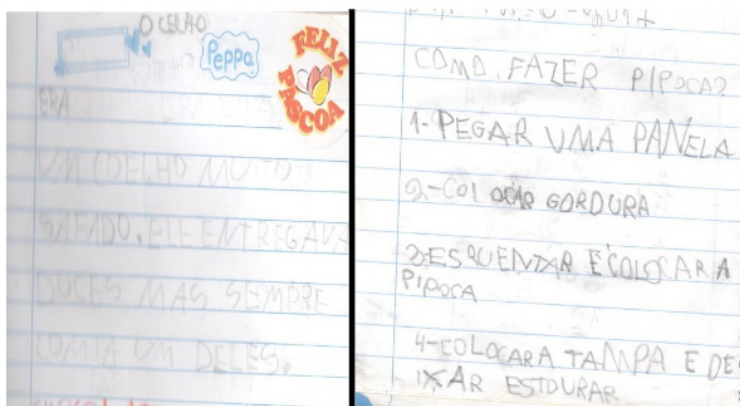 O CELHO
Peppa
FELIZ
PÁSCOA
ERA
UM COELHO MUITO
SAFADO. ELE ENTREGAVA
DOCES MAS SEMPRE
COMIA UM DELES.
COMO FAZER PIPOCA?
1-PEGAR UMA PANELA
2-COLOCAR GORDURA
3-ESQUENTAR E COLOCAR A
PIPOCA
4-COLOCAR A TAMPA E DE
IXAR ESTOURAR